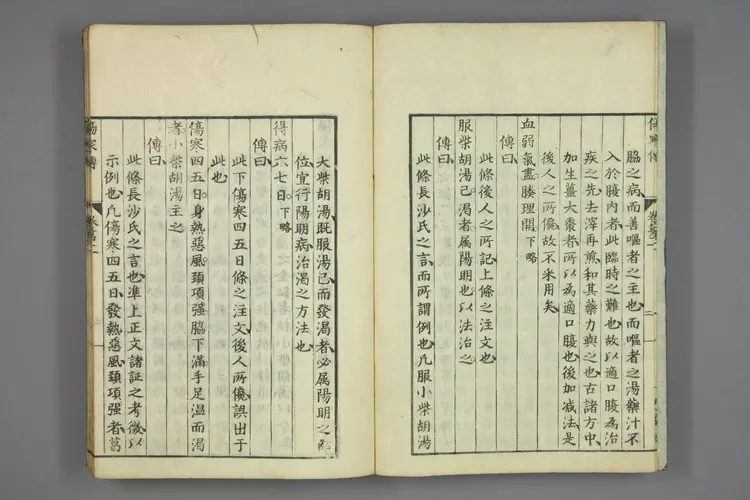 脇之病而善嘔者之主也而嘔者之湯藥汁不
入於腹內者此臨時之難也故以適口腹為治
疾之先去滓再煎和其藥力與之也古諸方中
加生薑大棗者所以為適口腹也後加減法是
後人之所儳故不采用矣
血弱氣盡腠理開下略
傳曰
此條後人之所記上條之注文也
服柴胡湯已渴者属陽明也以法治之
傳曰
此條長沙氏之言而所謂例也凡服小柴胡湯
大柴胡湯既服湯已而發渴者必属陽明之
位宜行陽明病治渴之方法也
得病六七日下略
傳曰
此下傷寒四五日條之注文後人所儳誤出于
此也
傷寒四五日身熱惡風頚項强脇下滿手足温而渴
者小柴胡湯主之
傳曰
此條長沙氏之言也準上正文諸証之考徵以
示例也凡傷寒四五日發熱惡風頚項强者葛
傷寒傳